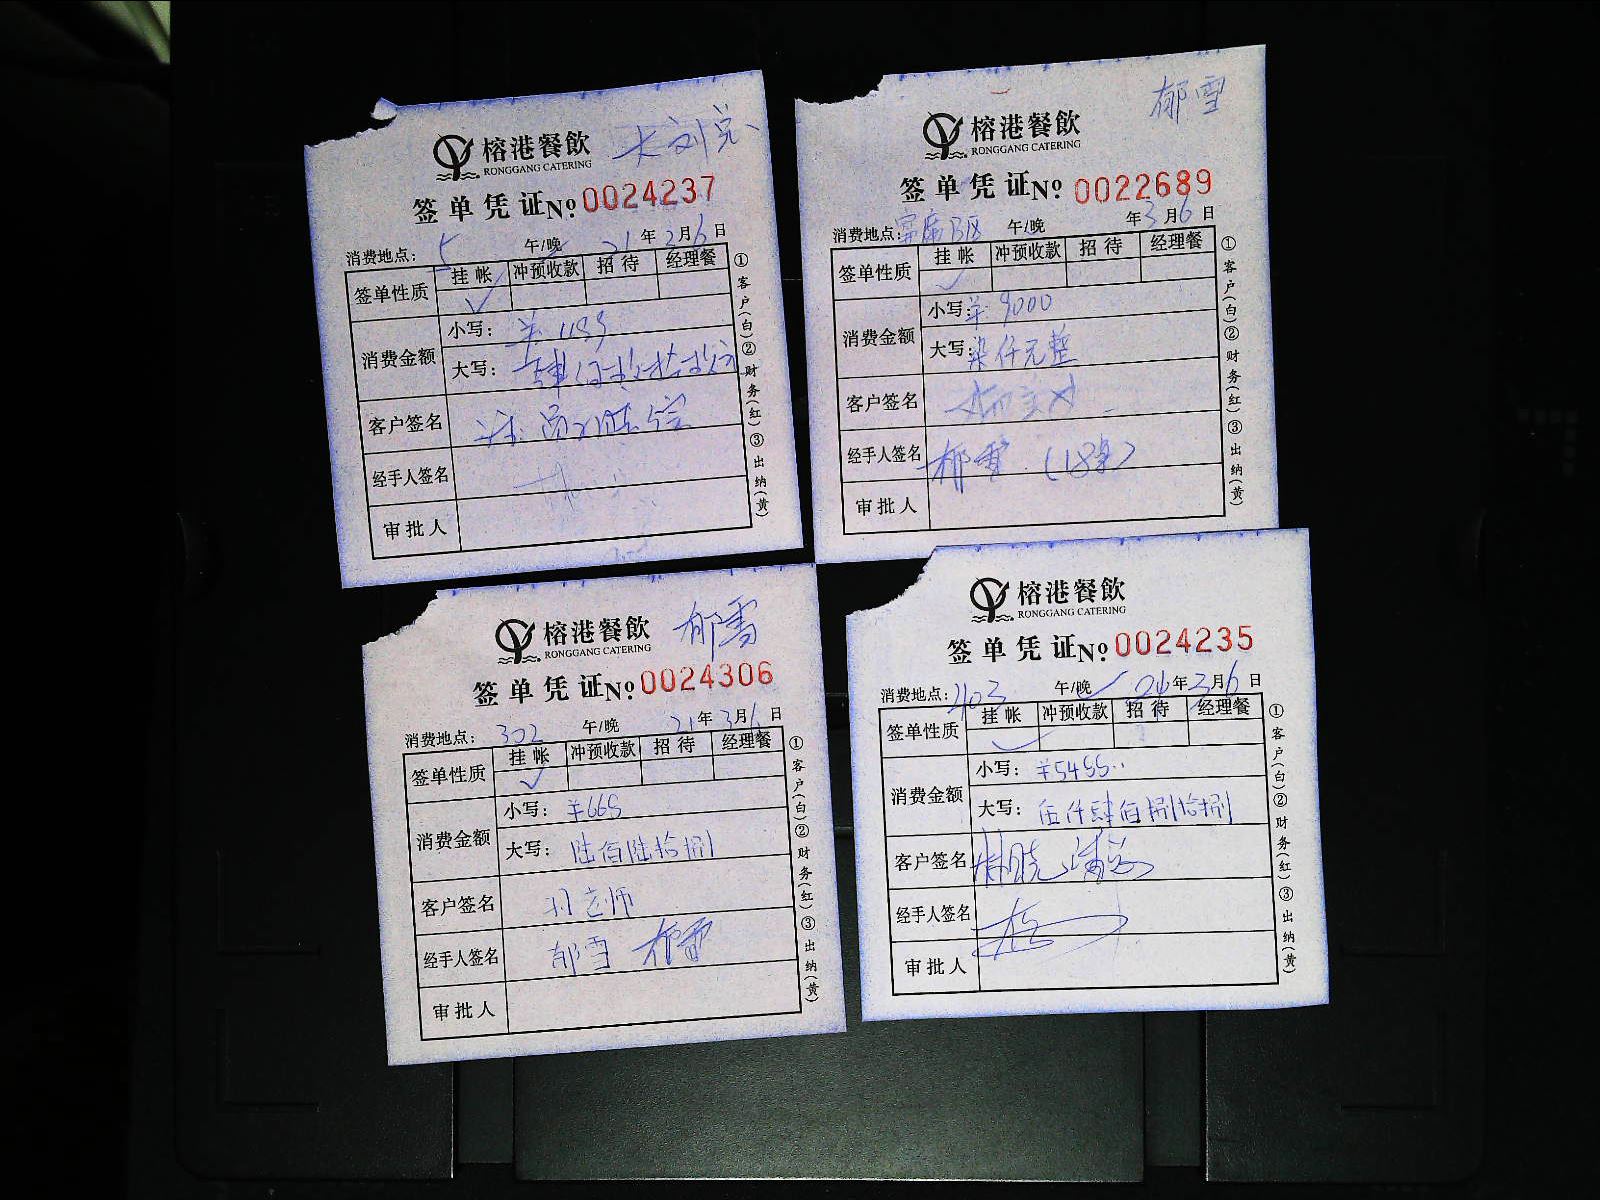 榕港餐飲
RONGGANG CATERING
签单凭证 № 0024237
消费地点: 午/晚 21年3月6日
签单性质 挂帐 冲预收款 招待 经理餐
✓
消费金额 小写:
大写:
客户签名
经手人签名
审批人
①客户(白)②财务(红)③出纳(黄)
郁雪
榕港餐飲
RONGGANG CATERING
签单凭证 № 0022689
消费地点: 午/晚 年3月6日
签单性质 挂帐 冲预收款 招待 经理餐
✓
消费金额 小写:
大写: 柒仟元整
客户签名
经手人签名 郁雪 (18桌)
审批人
①客户(白)②财务(红)③出纳(黄)
榕港餐飲 郁雪
RONGGANG CATERING
签单凭证 № 0024306
消费地点: 302 午/晚 21年3月6日
签单性质 挂帐 冲预收款 招待 经理餐
✓
消费金额 小写: ¥668
大写: 陆佰陆拾捌
客户签名 孙老师
经手人签名 郁雪 郁雪
审批人
①客户(白)②财务(红)③出纳(黄)
榕港餐飲
RONGGANG CATERING
签单凭证 № 0024235
消费地点: 403 午/晚 ✓ 年3月6日
签单性质 挂帐 冲预收款 招待 经理餐
✓
消费金额 小写: ¥5488
大写: 伍仟肆佰捌拾捌
客户签名
经手人签名
审批人
①客户(白)②财务(红)③出纳(黄)